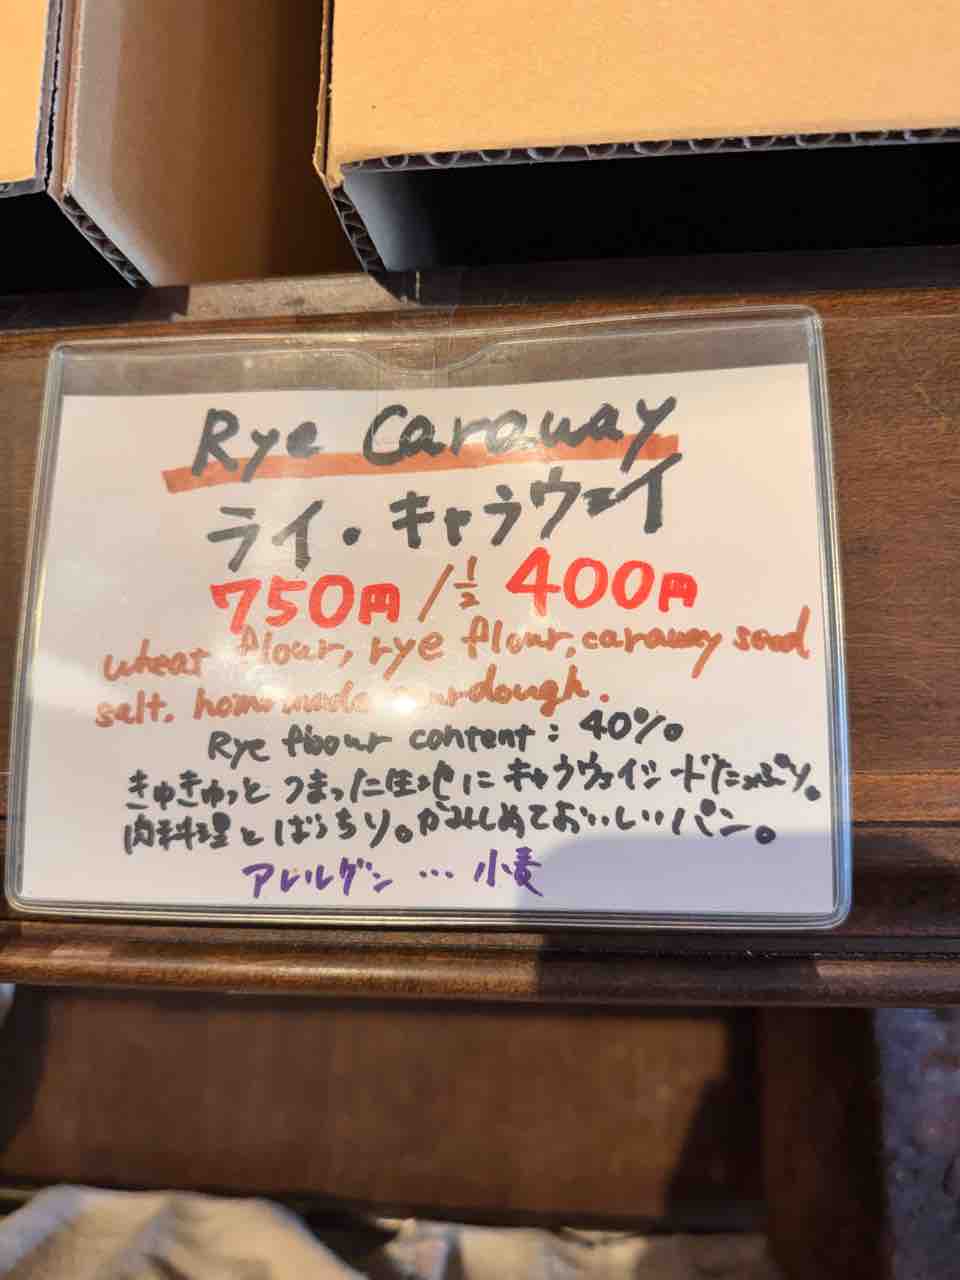 Rye Caraway
ライ・キャラウェイ
750円 / 1/2 400円
wheat flour, rye flour, caraway seed
salt. homemade sourdough.
Rye flour content : 40%。
きゅきゅっと つまった生地に キャラウェイシードたっぷり。
肉料理とばっちり。かみしめておいしいパン。
アレルゲン … 小麦